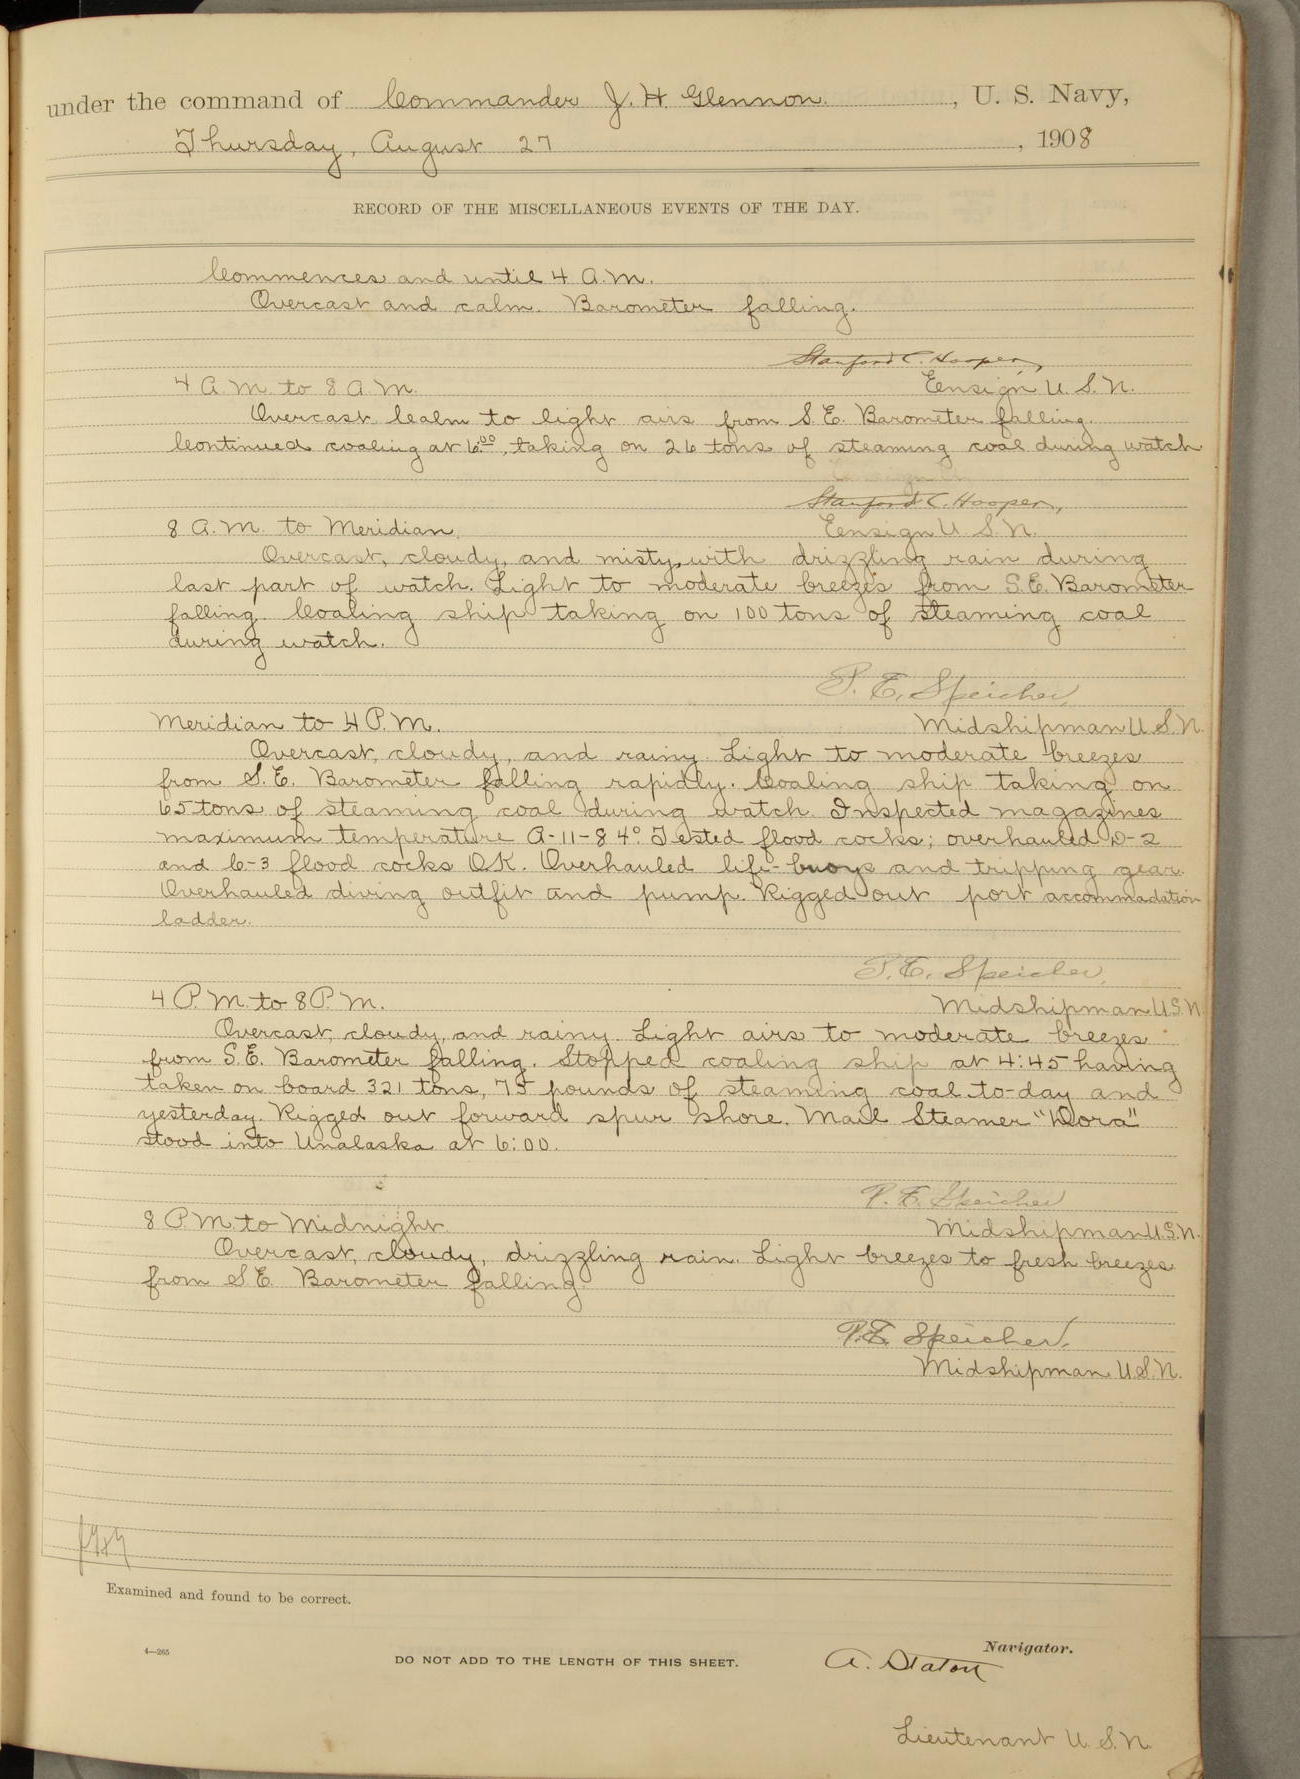 under the command of Commander J. H. Glennon. , U. S. Navy,
Thursday, August 27 , 1908
RECORD OF THE MISCELLANEOUS EVENTS OF THE DAY.
Commences and until 4 A.M.
Overcast and calm. Barometer falling.
Stanford C. Hooper,
4 A.M. to 8 A.M. Eensign U.S.N.
Overcast. Calm to light airs from S.E. Barometer falling.
Continued coaling at 6:00, taking on 26 tons of steaming coal during watch
Stanford C. Hooper,
8 A.M. to Meridian. Eensign U.S.N.
Overcast, cloudy, and misty, with drizzling rain during
last part of watch. Light to moderate breezes from S.E. Barometer
falling. Coaling ship taking on 100 tons of steaming coal
during watch.
P. E. Speicher,
Meridian to 4 P.M. Midshipman U.S.N.
Overcast, cloudy, and rainy. Light to moderate breezes
from S.E. Barometer falling rapidly. Coaling ship taking on
65 tons of steaming coal during watch. Inspected magazines
maximum temperature A-11-84° Tested flood cocks; overhauled D-2
and C-3 flood cocks OK. Overhauled life-buoys and tripping gear.
Overhauled diving outfit and pump. Rigged out port accommadation
ladder.
P.E. Speicher,
4 P.M. to 8 P.M. Midshipman U.S.N.
Overcast, cloudy, and rainy. Light airs to moderate breezes
from S.E. Barometer falling. Stopped coaling ship at 4:45 having
taken on board 321 tons, 75 pounds of steaming coal to-day and
yesterday. Rigged out forward spur shore. Mail Steamer "Dora"
stood into Unalaska at 6:00.
P. E. Speicher
8 P.M. to Midnight. Midshipman U.S.N.
Overcast, cloudy, drizzling rain. Light breezes to fresh breezes
from S.E. Barometer falling.
P.E. Speicher,
Midshipman U.S.N.
Examined and found to be correct.
4—265
DO NOT ADD TO THE LENGTH OF THIS SHEET.
Navigator.
A. Staton
Lieutenant U.S.N.